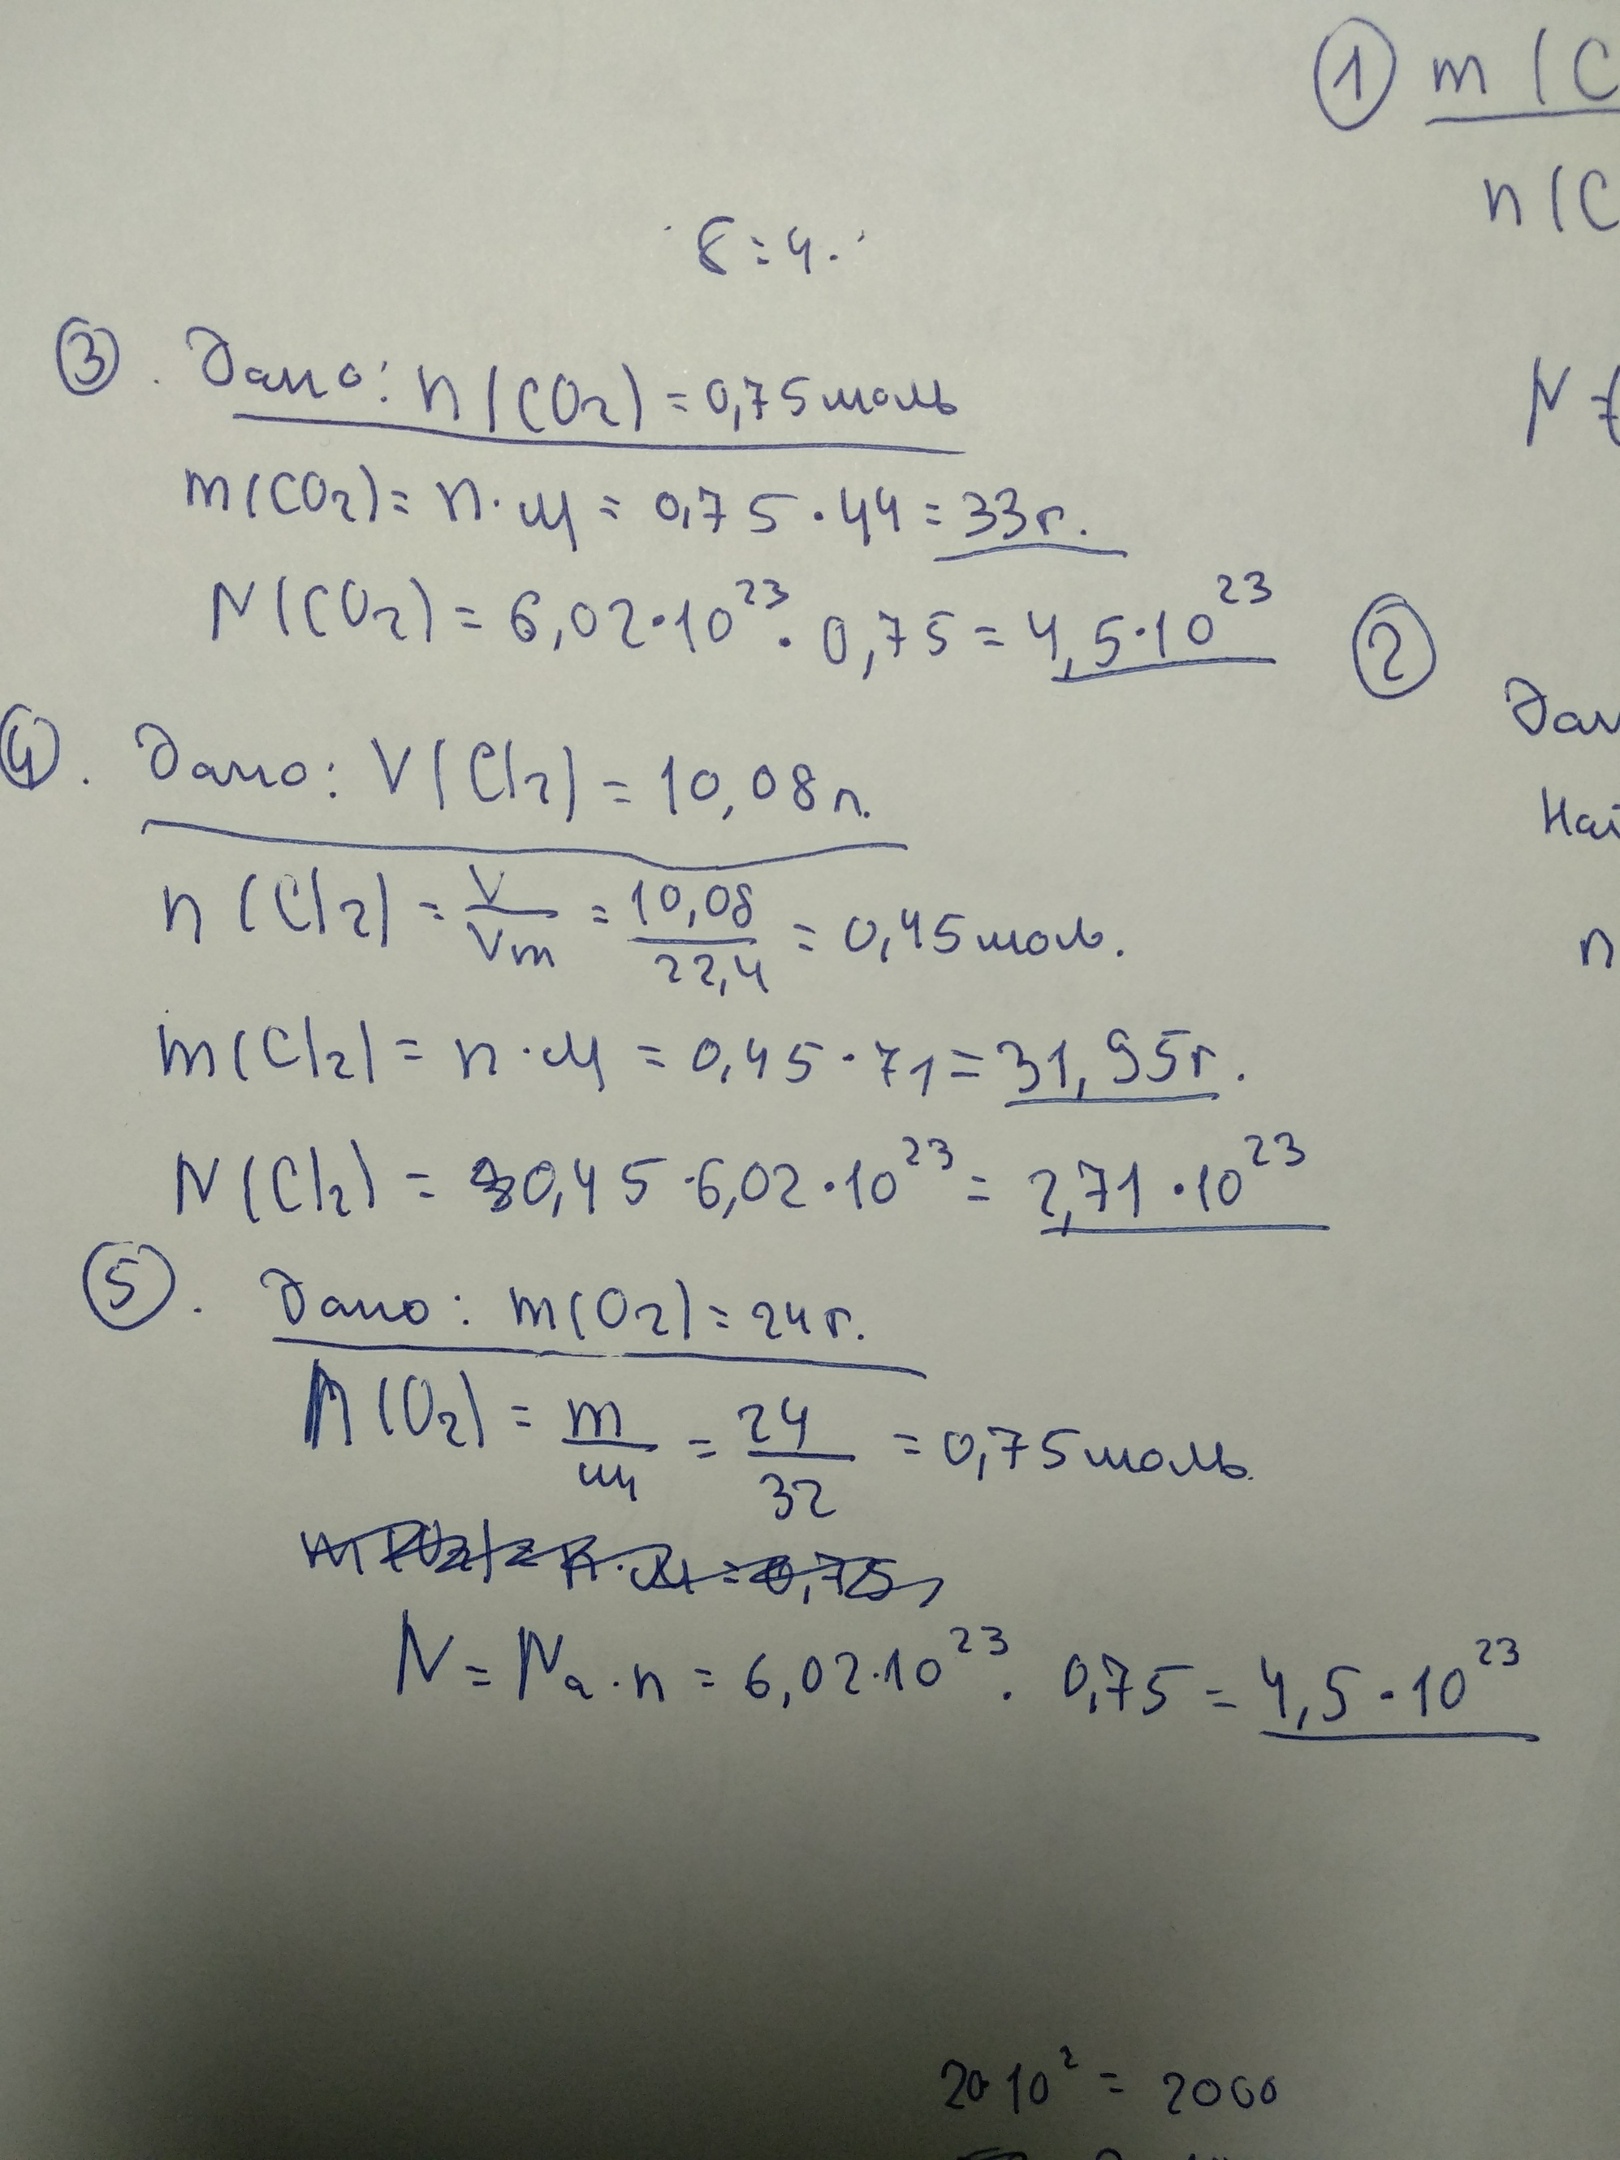 ① m(C
n(C
8:4.
③. Дано: n(CO₂) = 0,75 моль
m(CO₂) = n·M = 0,75·44 = 33г.
N(CO₂) = 6,02·10²³·0,75 = 4,5·10²³
④. Дано: V(Cl₂) = 10,08л.
n(Cl₂) = V/Vm = 10,08/22,4 = 0,45 моль.
m(Cl₂) = n·M = 0,45·71 = 31,95г.
N(Cl₂) = 0,45·6,02·10²³ = 2,71·10²³
⑤. Дано: m(O₂) = 24г.
n(O₂) = m/M = 24/32 = 0,75 моль
N = Na·n = 6,02·10²³·0,75 = 4,5·10²³
N =
②
Дан
Най
n
20·10² = 2000